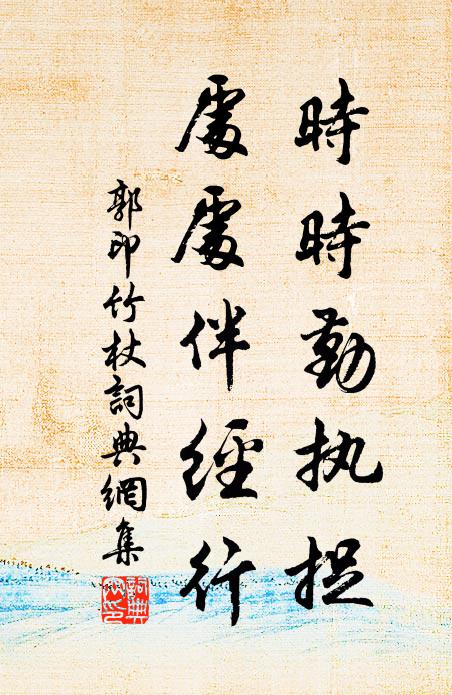 時時勤执捉
處處伴經行
郭印竹杖詞典網集